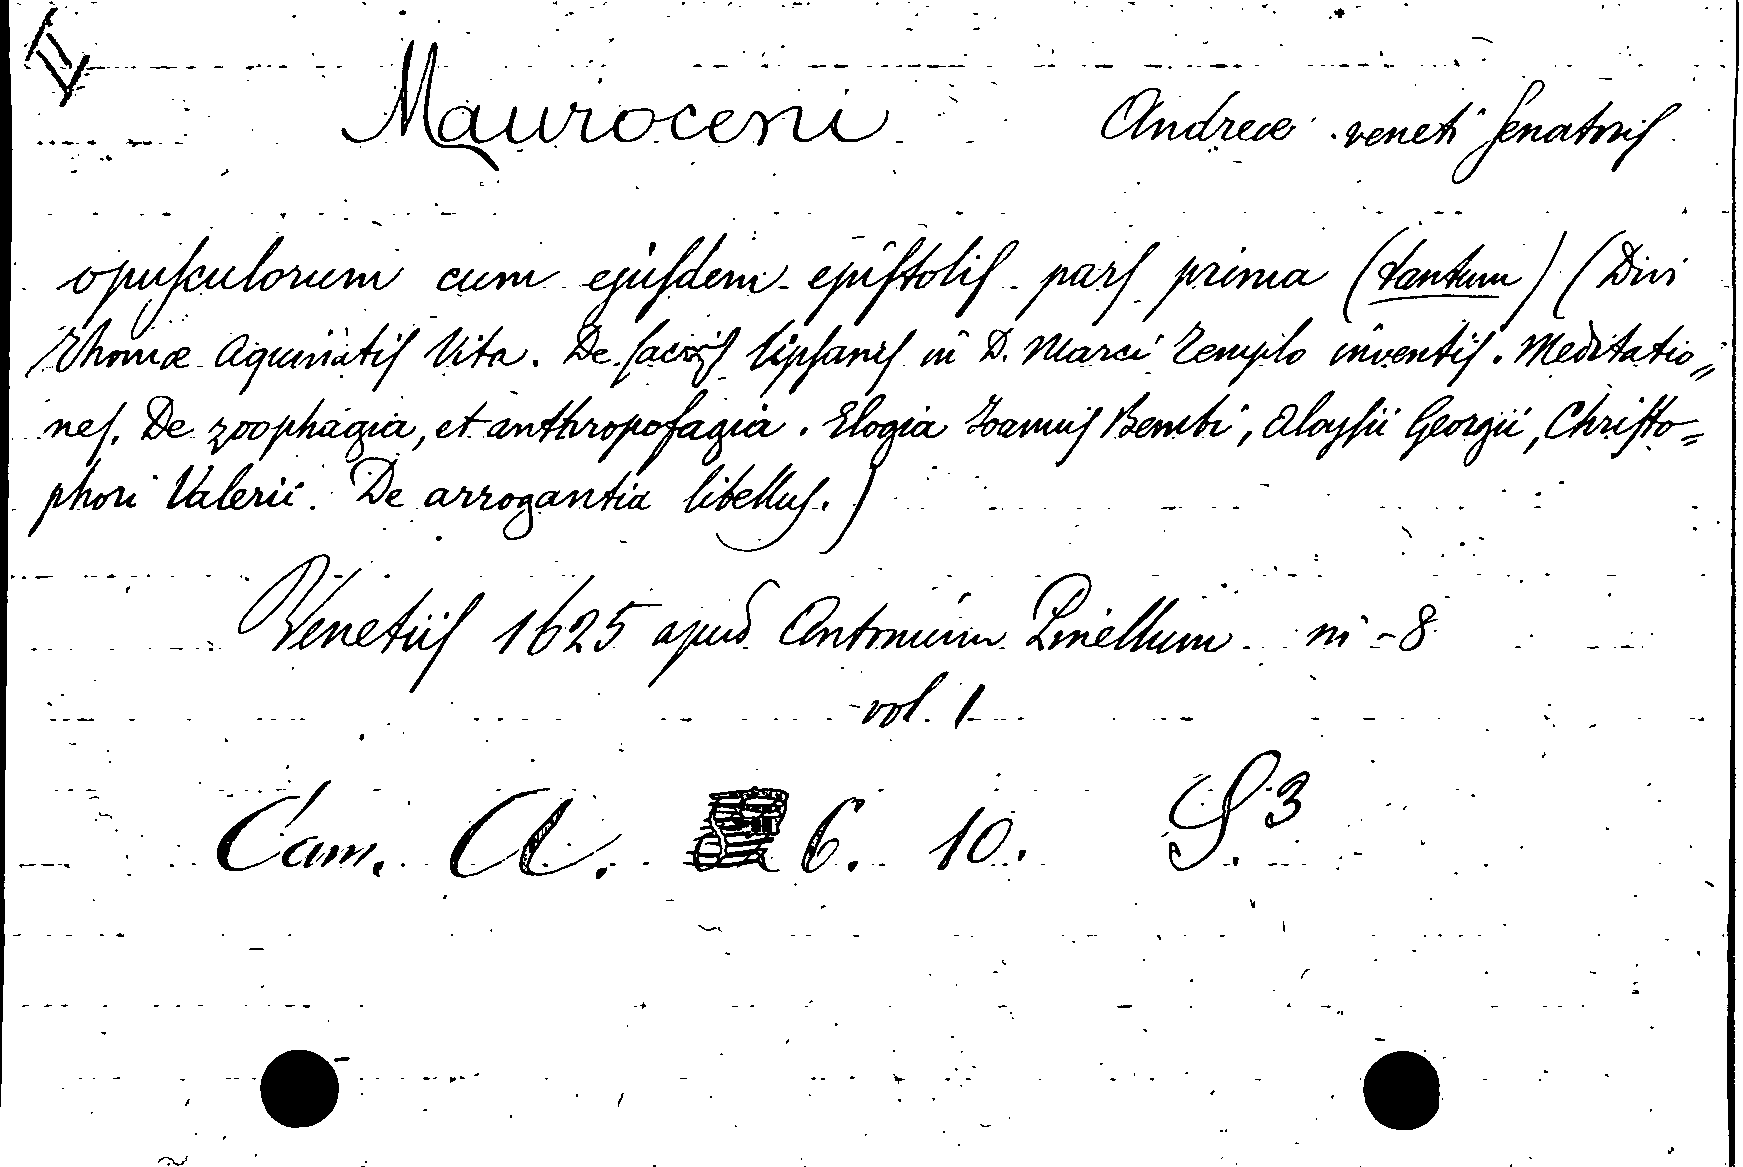 Mauroceni Andreæ veneti Senatoris
opusculorum cum ejusdem epistolis pars prima (tantum) (Divi
Thomæ Aquinatis Vita. De sacris lipsanis in D. Marci Templo inventis. Meditatio=
nes. De zoophagia, et anthropofagia. Elogia Joannis Bembi, Aloysii Georgii, Christo=
phori Valerii. De arrogantia libellus.)
Venetiis 1625 apud Antonium Pinellum in-8
vol. 1
Cam. A. 6. 10. S.3